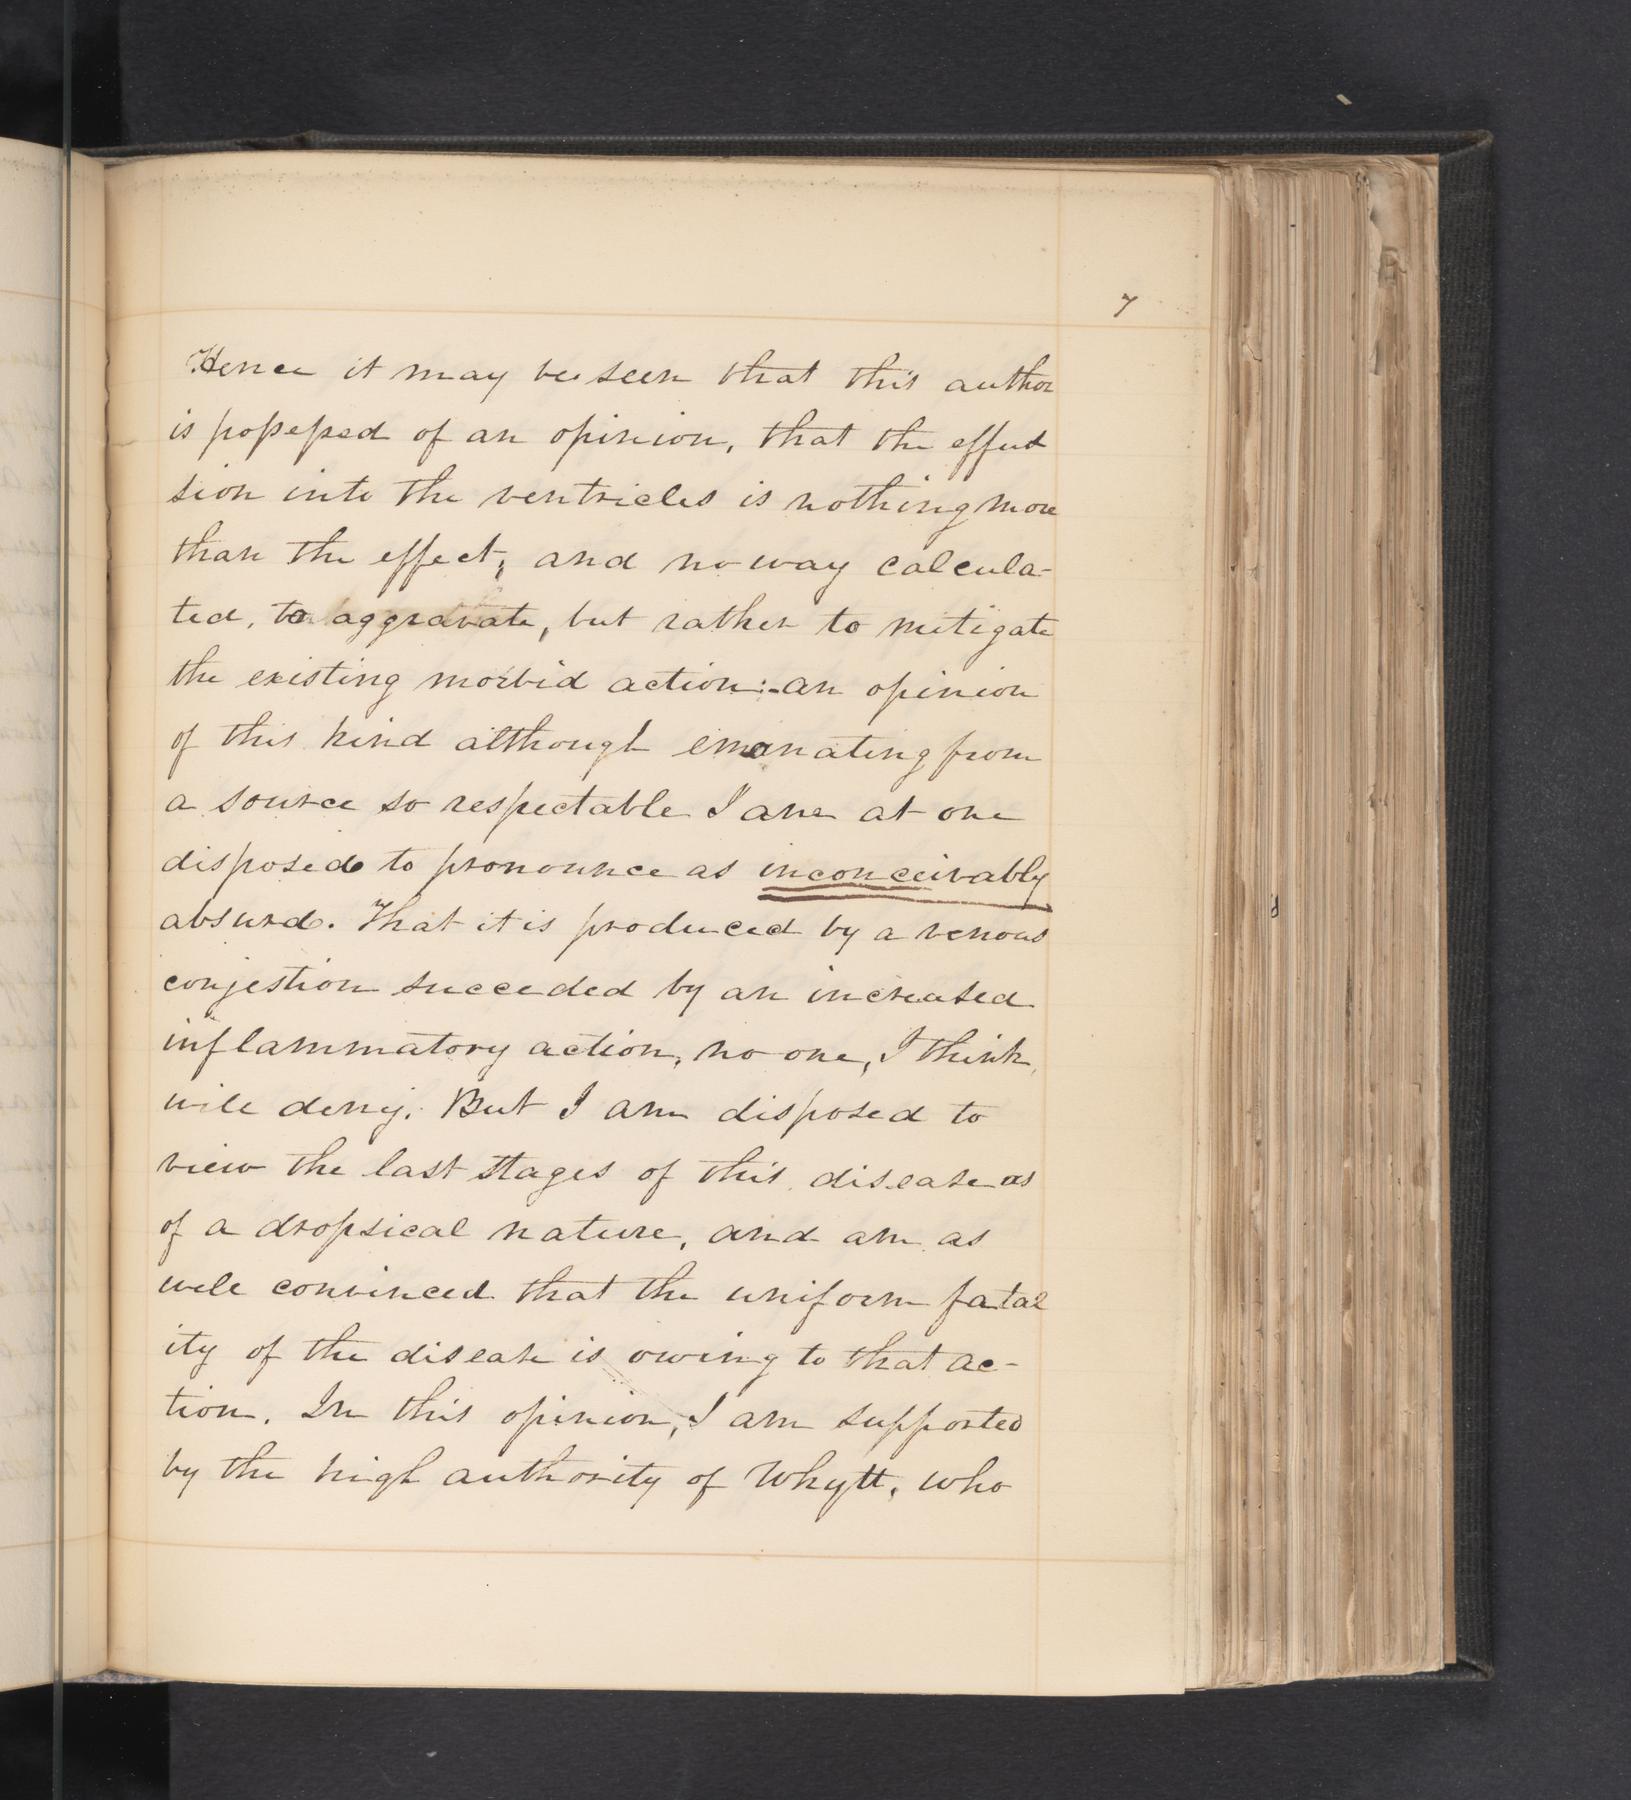 7
Hence it may be seen that this author
is possessed of an opinion, that the effud
sion into the ventricles is nothing more
than the effect, and no way calcula-
ted, to aggravate, but rather to mitigate
the existing morbid action:-an opinion
of this kind although emanating from
a source so respectable I am at one
disposed to pronounce as inconceivably
absurd. That it is produced by a venous
congestion succeeded by an increased
inflammatory action, no one, I think,
will deny. But I am disposed to
view the last stages of this disease as
of a dropsical nature, and am as
well convinced that the uniform fatal
ity of the disease is owing to that ac-
tion. In this opinion, I am supported
by the high authority of Whytt, who